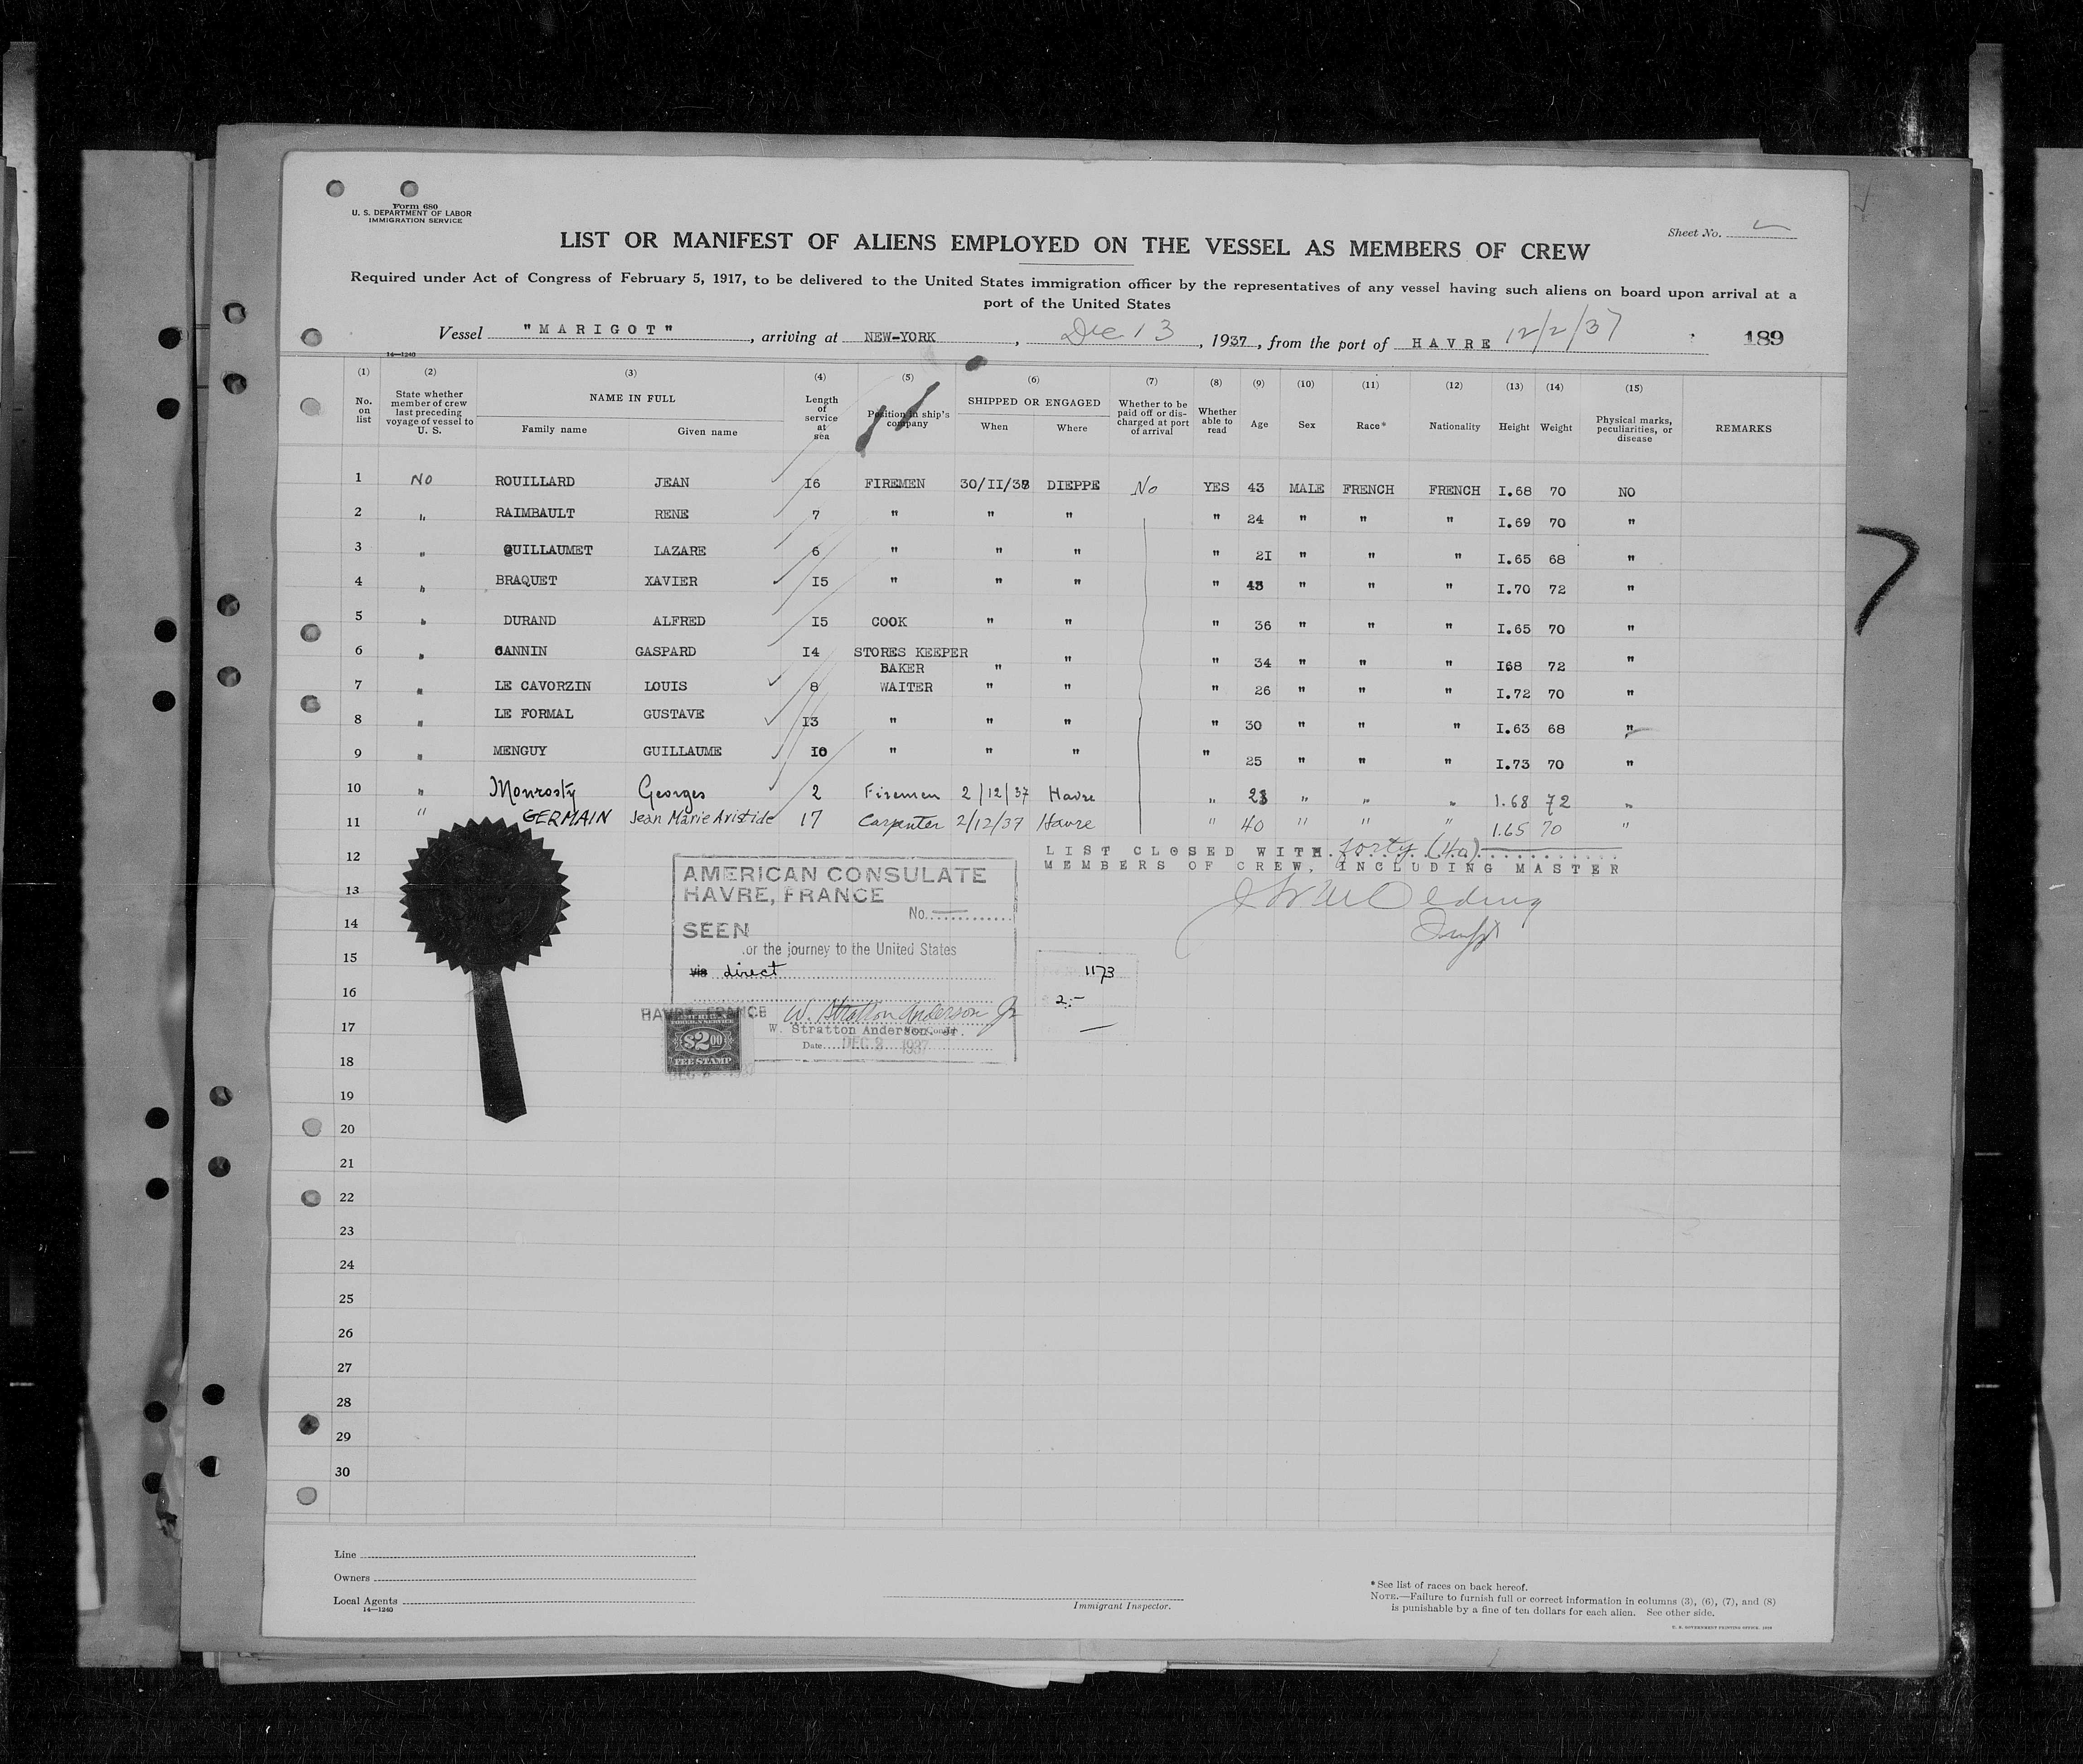 Form 680
U. S. DEPARTMENT OF LABOR
IMMIGRATION SERVICE
Sheet No.
LIST OR MANIFEST OF ALIENS EMPLOYED ON THE VESSEL AS MEMBERS OF CREW
Required under Act of Congress of February 5, 1917, to be delivered to the United States immigration officer by the representatives of any vessel having such aliens on board upon arrival at a
port of the United States
Vessel "MARIGOT", arriving at NEW-YORK, Dec 13, 1937, from the port of HAVRE 12/2/37 189
14—1240
(1) (2) (3) (4) (5) (6) (7) (8) (9) (10) (11) (12) (13) (14) (15)
No. on list State whether member of crew last preceding voyage of vessel to U. S. NAME IN FULL Family name Given name Length of service at sea Position in ship's company SHIPPED OR ENGAGED When Where Whether to be paid off or discharged at port of arrival Whether able to read Age Sex Race* Nationality Height Weight Physical marks, peculiarities, or disease REMARKS
1 NO ROUILLARD JEAN I6 FIREMEN 30/II/37 DIEPPE No YES 43 MALE FRENCH FRENCH I.68 70 NO
2 " RAIMBAULT RENE 7 " " " " 24 " " " I.69 70 "
3 " GUILLAUMET LAZARE 6 " " " " 2I " " " I.65 68 "
4 " BRAQUET XAVIER I5 " " " " 43 " " " I.70 72 "
5 " DURAND ALFRED I5 COOK " " " 36 " " " I.65 70 "
6 " CANNIN GASPARD I4 STORES KEEPER BAKER " " " 34 " " " I68 72 "
7 " LE CAVORZIN LOUIS 8 WAITER " " " 26 " " " I.72 70 "
8 " LE FORMAL GUSTAVE I3 " " " " 30 " " " I.63 68 "
9 " MENGUY GUILLAUME I0 " " " " 25 " " " I.73 70 "
10 " Monrosty Georges 2 Firemen 2/12/37 Havre " 23 " " " 1.68 72 "
11 " GERMAIN Jean Marie Aristide 17 Carpenter 2/12/37 Havre " 40 " " " 1.65 70 "
12 LIST CLOSED WITH forty (40)
MEMBERS OF CREW, INCLUDING MASTER
AMERICAN CONSULATE
HAVRE, FRANCE
No.
SEEN
or the journey to the United States
via direct
1173
2.-
HAVRE, FRANCE W. Stratton Anderson Jr
W. Stratton Anderson, Jr.
Date DEC 2 1937
$2.00
FEE STAMP
13
14
15
16
17
18
19
20
21
22
23
24
25
26
27
28
29
30
Line
Owners
Local Agents
14—1240
Immigrant Inspector.
* See list of races on back hereof.
NOTE.—Failure to furnish full or correct information in columns (3), (6), (7), and (8)
is punishable by a fine of ten dollars for each alien. See other side.
7